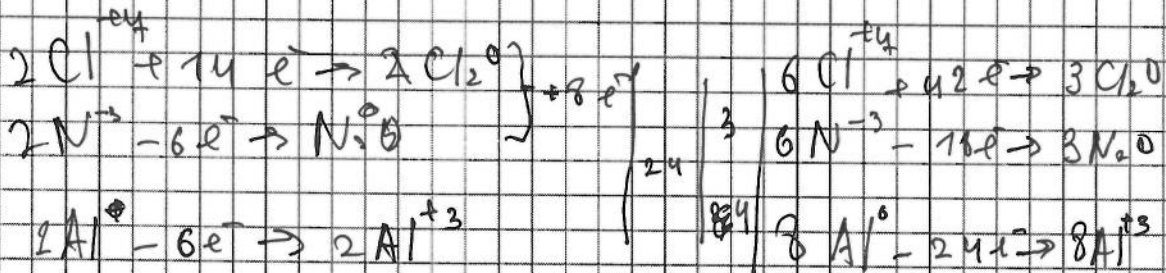 2Cl⁺⁷ + 14 e⁻ → 2Cl₂⁰ } +8 e⁻ | | 6Cl⁺⁷ + 42e⁻ → 3Cl₂⁰
2N⁻³ - 6e⁻ → N₂⁰ | 24 | 3 | 6N⁻³ - 18e⁻ → 3N₂⁰
2Al⁰ - 6e⁻ → 2Al⁺³ | 4 | 8Al⁰ - 24e⁻ → 8Al⁺³